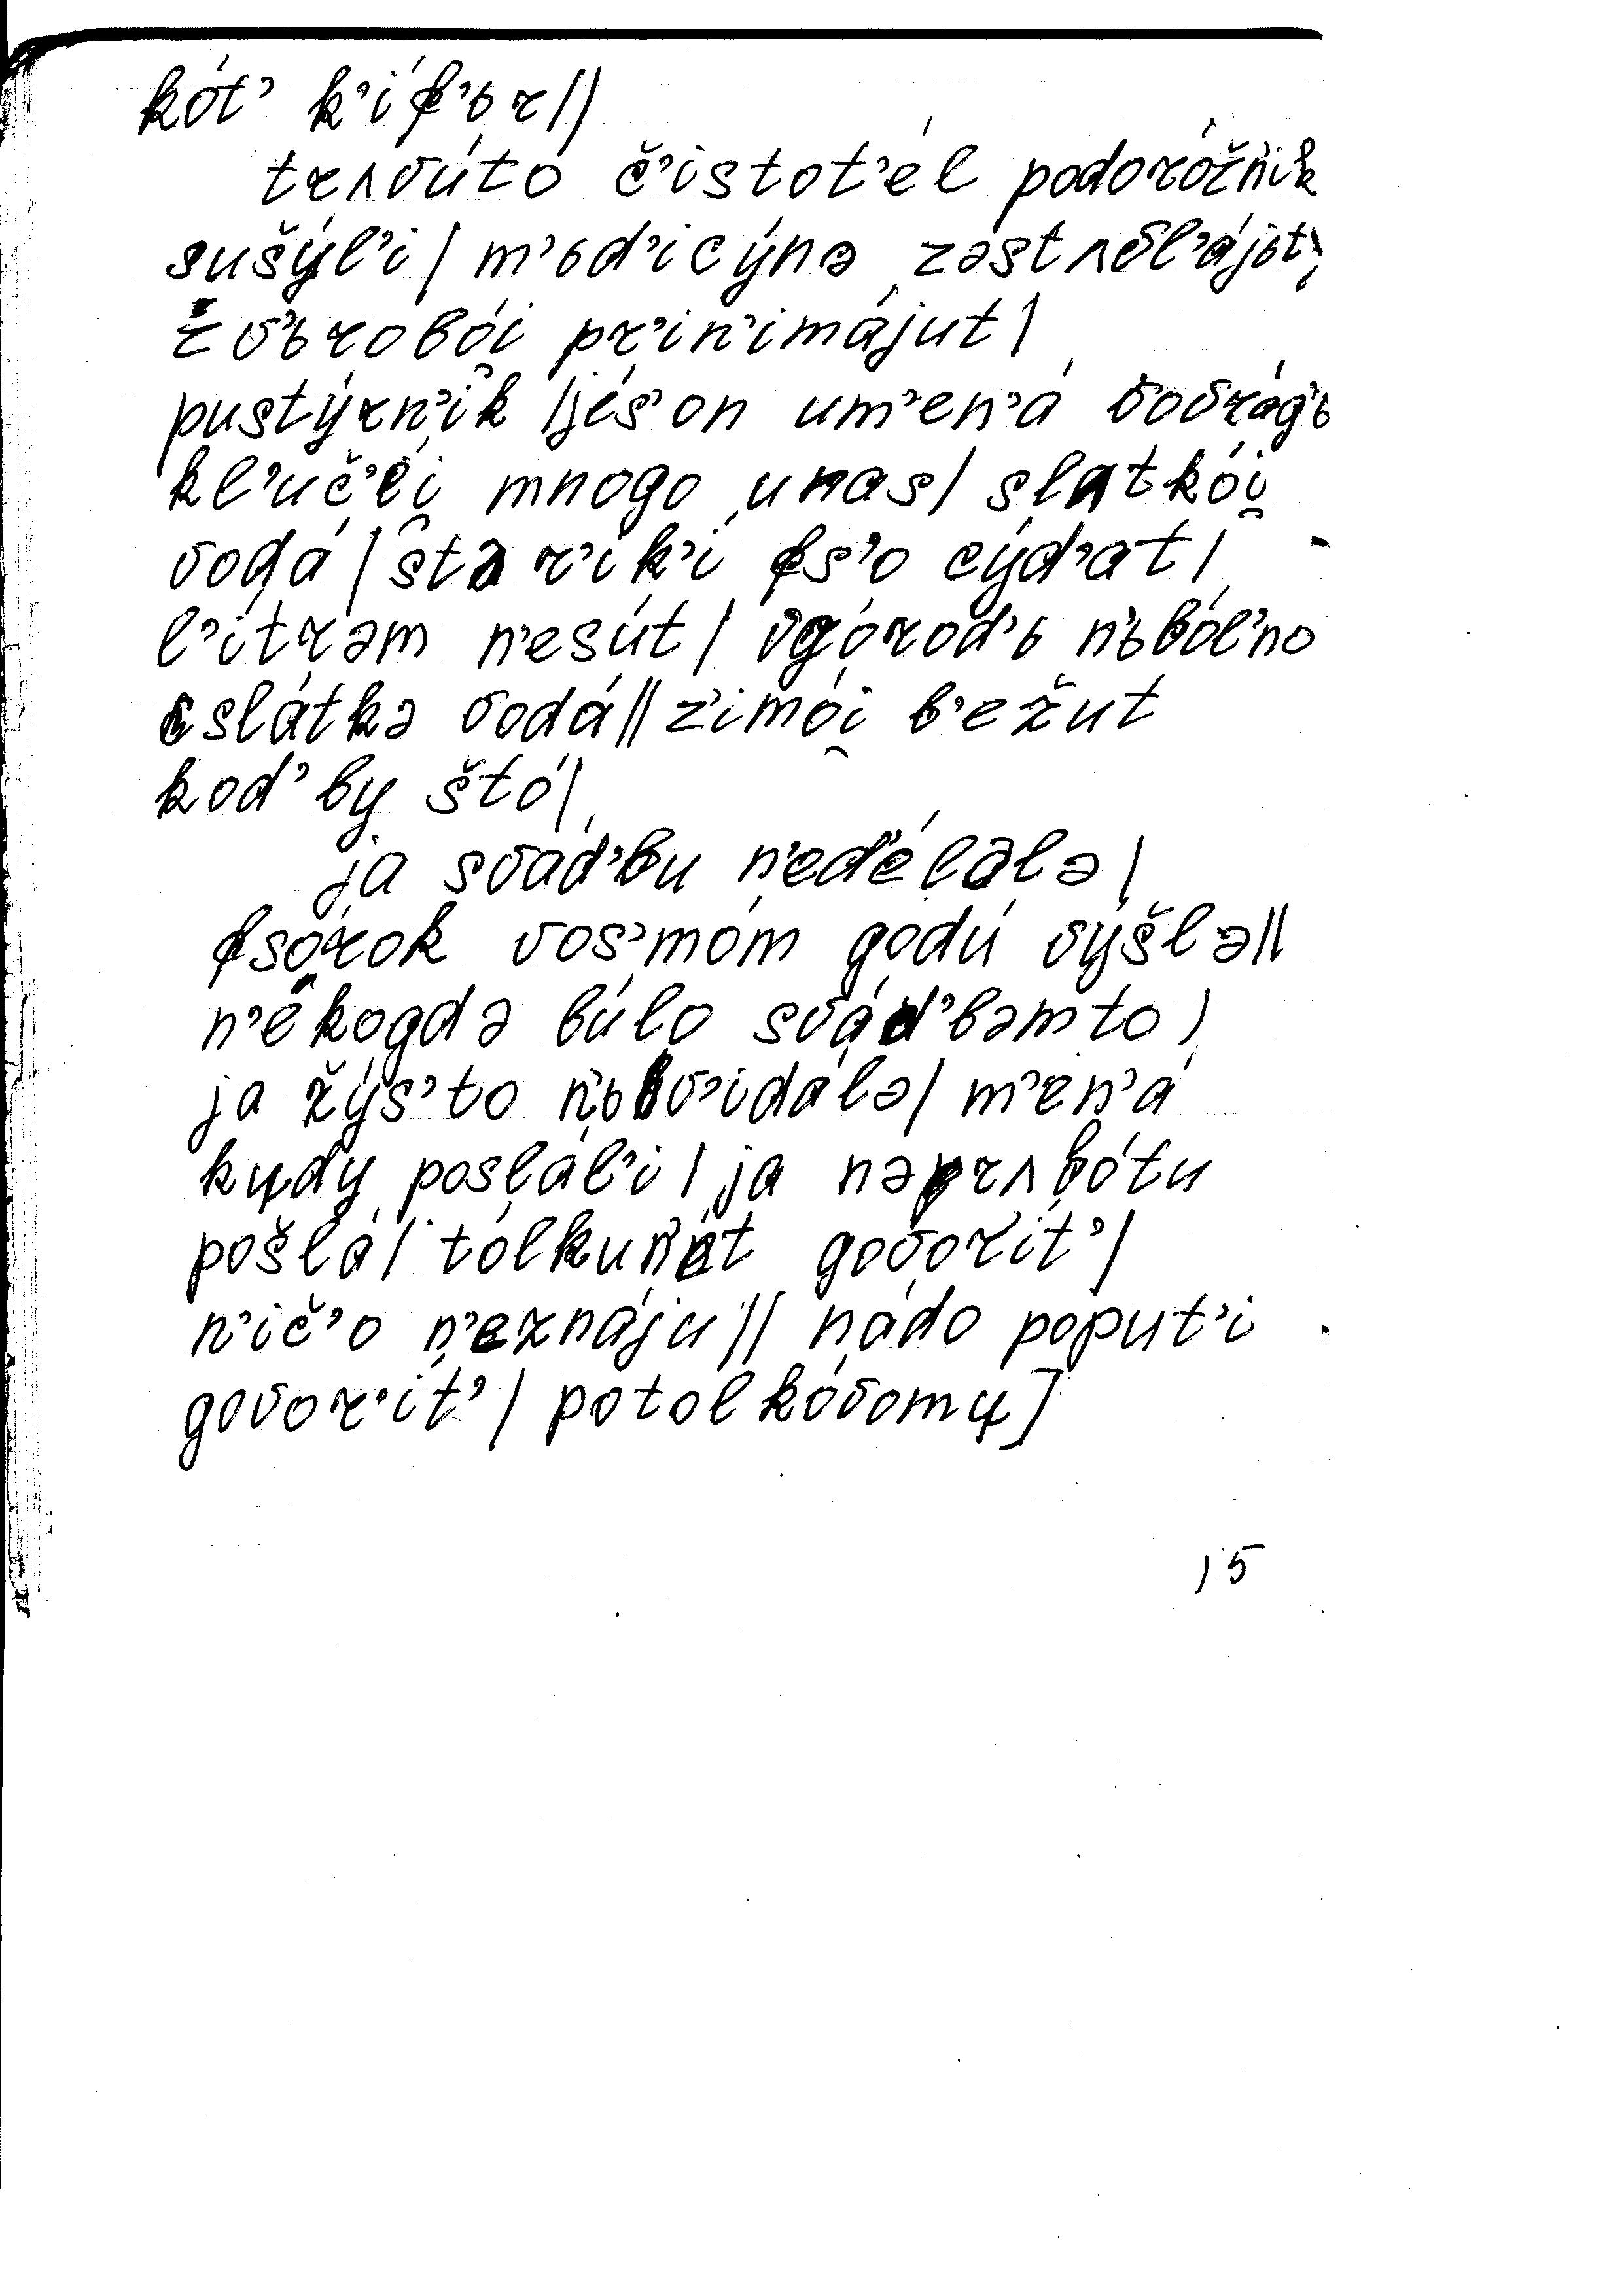 kót’ k’íf’ър||
trʌvúto č’istot’él podoróžn’ik
sušýl’i| m’ъd’icýnə zəstʌvl’ájьt,
zv’ъrobói̯ pr’in’imájut|
pustýrn’ik |jés’on um’en’á vovrág’ъ
kl’uč’éi̯ mnogo unas| slatkói̯
vodá| stər’ik’í fs’o cýd’at|
l’ítrəm n’esút| vgórod’ъ n’ъból’no
slátkə vodá|| z’imói̯ b’ežut
kod’by štó|
ja svád’bu n’ed’élələ|
fsórok vos’móm godú výšlə||
n’ékogdə búlo svád’bəmto|
ja žýs’to n’ъv’idálə| m’en’á
kudy poslál’i| ja nərʌbótu
pošlá| tólkun’et govor’ít’|
n’ič’o n’eznáju|| nádo poput’i
govor’ít’| potolkóvomu]
15